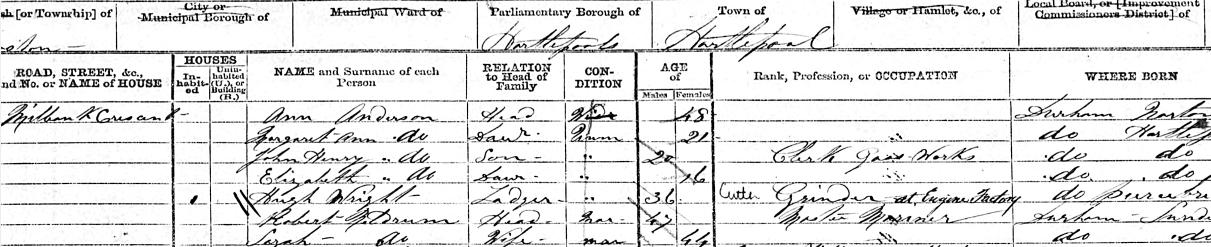 sh [or Township] of City or Municipal Borough of Municipal Ward of Parliamentary Borough of Town of Village or Hamlet, &c., of Local Board, or [Improvement Commissioners District] of
Hartlepools Hartlepool
ROAD, STREET, &c., and No. or NAME of HOUSE HOUSES Inhabited Uninhabited (U.), or Building (B.) NAME and Surname of each Person RELATION to Head of Family CONDITION AGE of Males Females Rank, Profession, or OCCUPATION WHERE BORN
Milbank Cresant Ann Anderson Head 48 Durham Norton
Margaret Ann do Daur Unm 21 do
John Henry " do Son " 20 Clerk Gass Works do do
Elizabeth " do Daur " 16 " do do
Hugh Wright Lodger " 36 Cutler Grinder at Engine Factory do
Robert Head Mar 47 Master Mariner Durham Sund
Sarah do Wife mar 44 do do